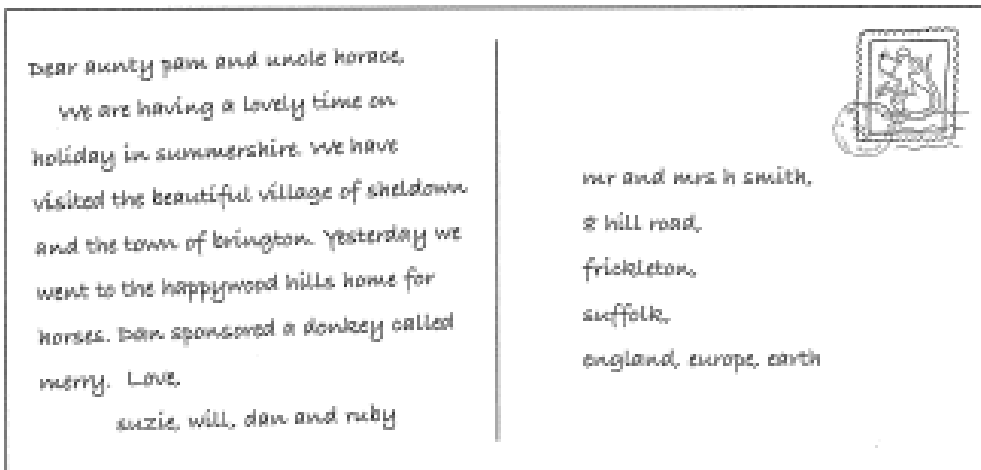 Dear aunty pam and uncle horace,
We are having a lovely time on
holiday in summershire. We have
visited the beautiful village of sheldown
and the town of brington. Yesterday we
went to the happywood hills home for
horses. Dan sponsored a donkey called
merry. Love,
suzie, will, dan and ruby
mr and mrs h smith,
8 hill road,
frickleton,
suffolk,
england, europe, earth